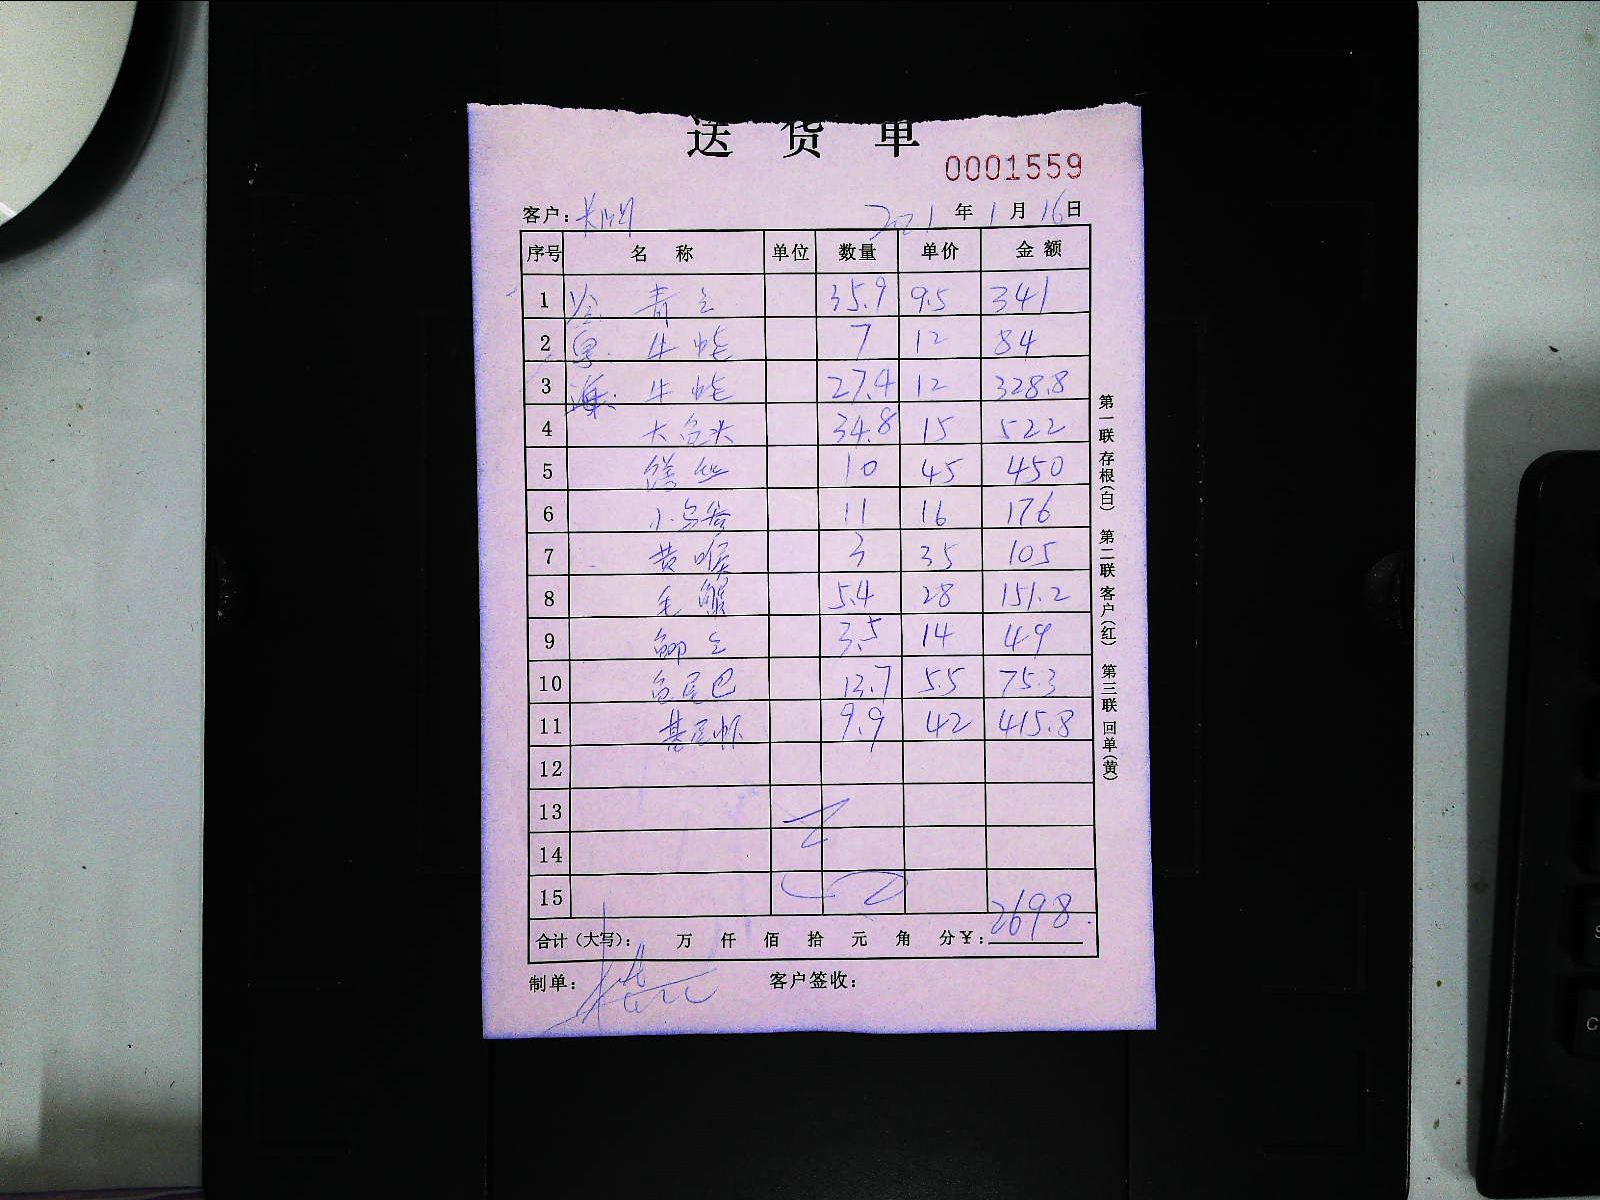 送货单
0001559
客户: 2021年1月16日
序号 名称 单位 数量 单价 金额
1 青 35.9 9.5 341
2 牛蛙 7 12 84
3 牛蛙 27.4 12 328.8
4 大鱼头 34.8 15 522
5 10 45 450
6 小 11 16 176
7 黄喉 3 35 105
8 毛蟹 5.4 28 151.2
9 3.5 14 49
10 鱼尾巴 13.7 5.5 75.3
11 基尾虾 9.9 42 415.8
12
13
14
15
合计(大写): 万 仟 佰 拾 元 角 分 ¥: 2698
制单: 客户签收:
第一联 存根(白) 第二联 客户(红) 第三联 回单(黄)